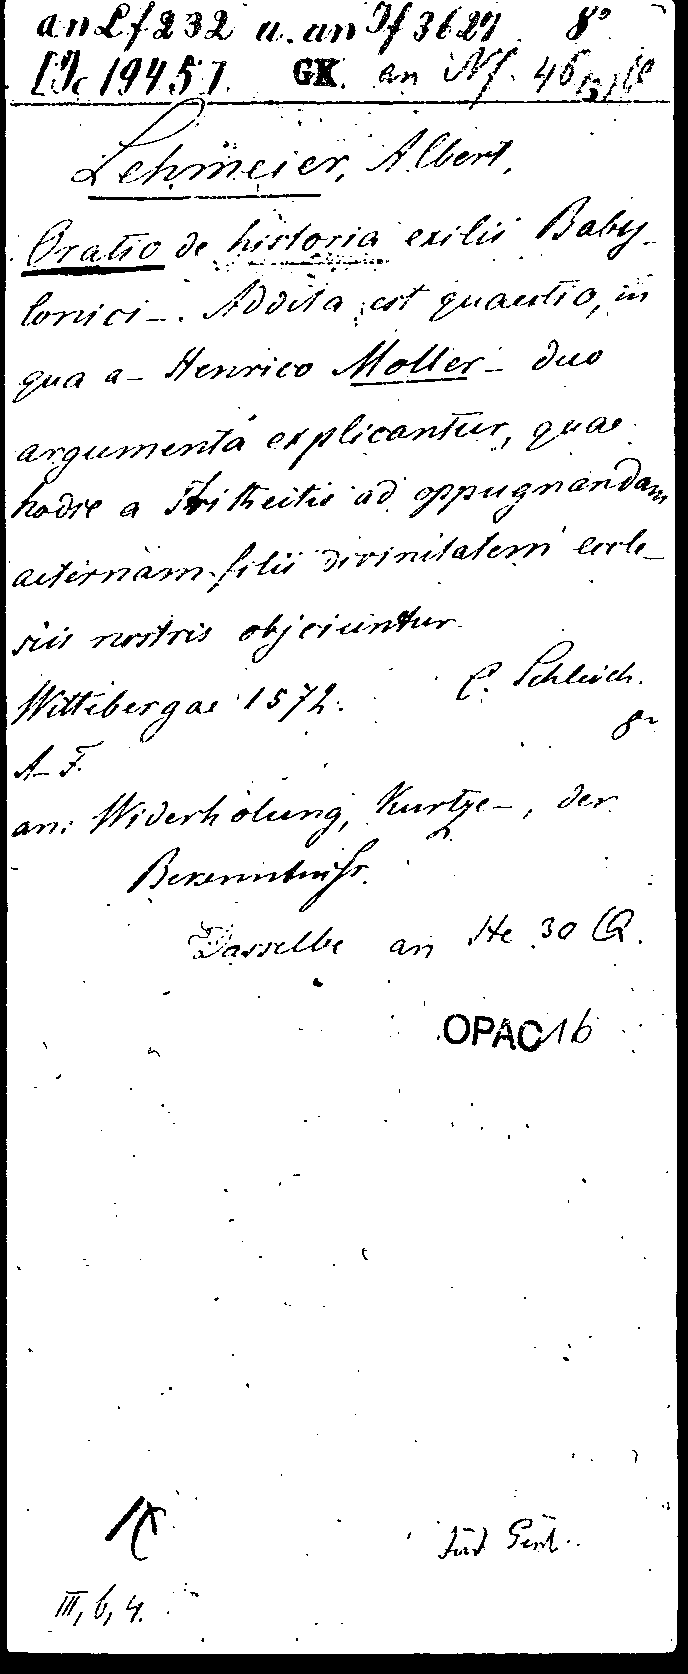 an Lf 232 u. an If 3627 8°
[Ic 19457. GK. an Nf. 46
Lehmeier, Albert.
Oratio de historia exilii Baby-
lonici –. Addita est quaestio, in
qua a – Henrico Moller – duo
argumenta explicantur, quae
hodie a Tritheitis ad oppugnandam
aeternam filii divinitatem eccle-
siis nostris objiciuntur
Wittebergae 1572. C. Schleich.
8°
A–F.
an: Widerholung, Kurtze –, der
Bekenntniss.
Dasselbe an He 30 Q.
OPAC 16
III, 6, 4.